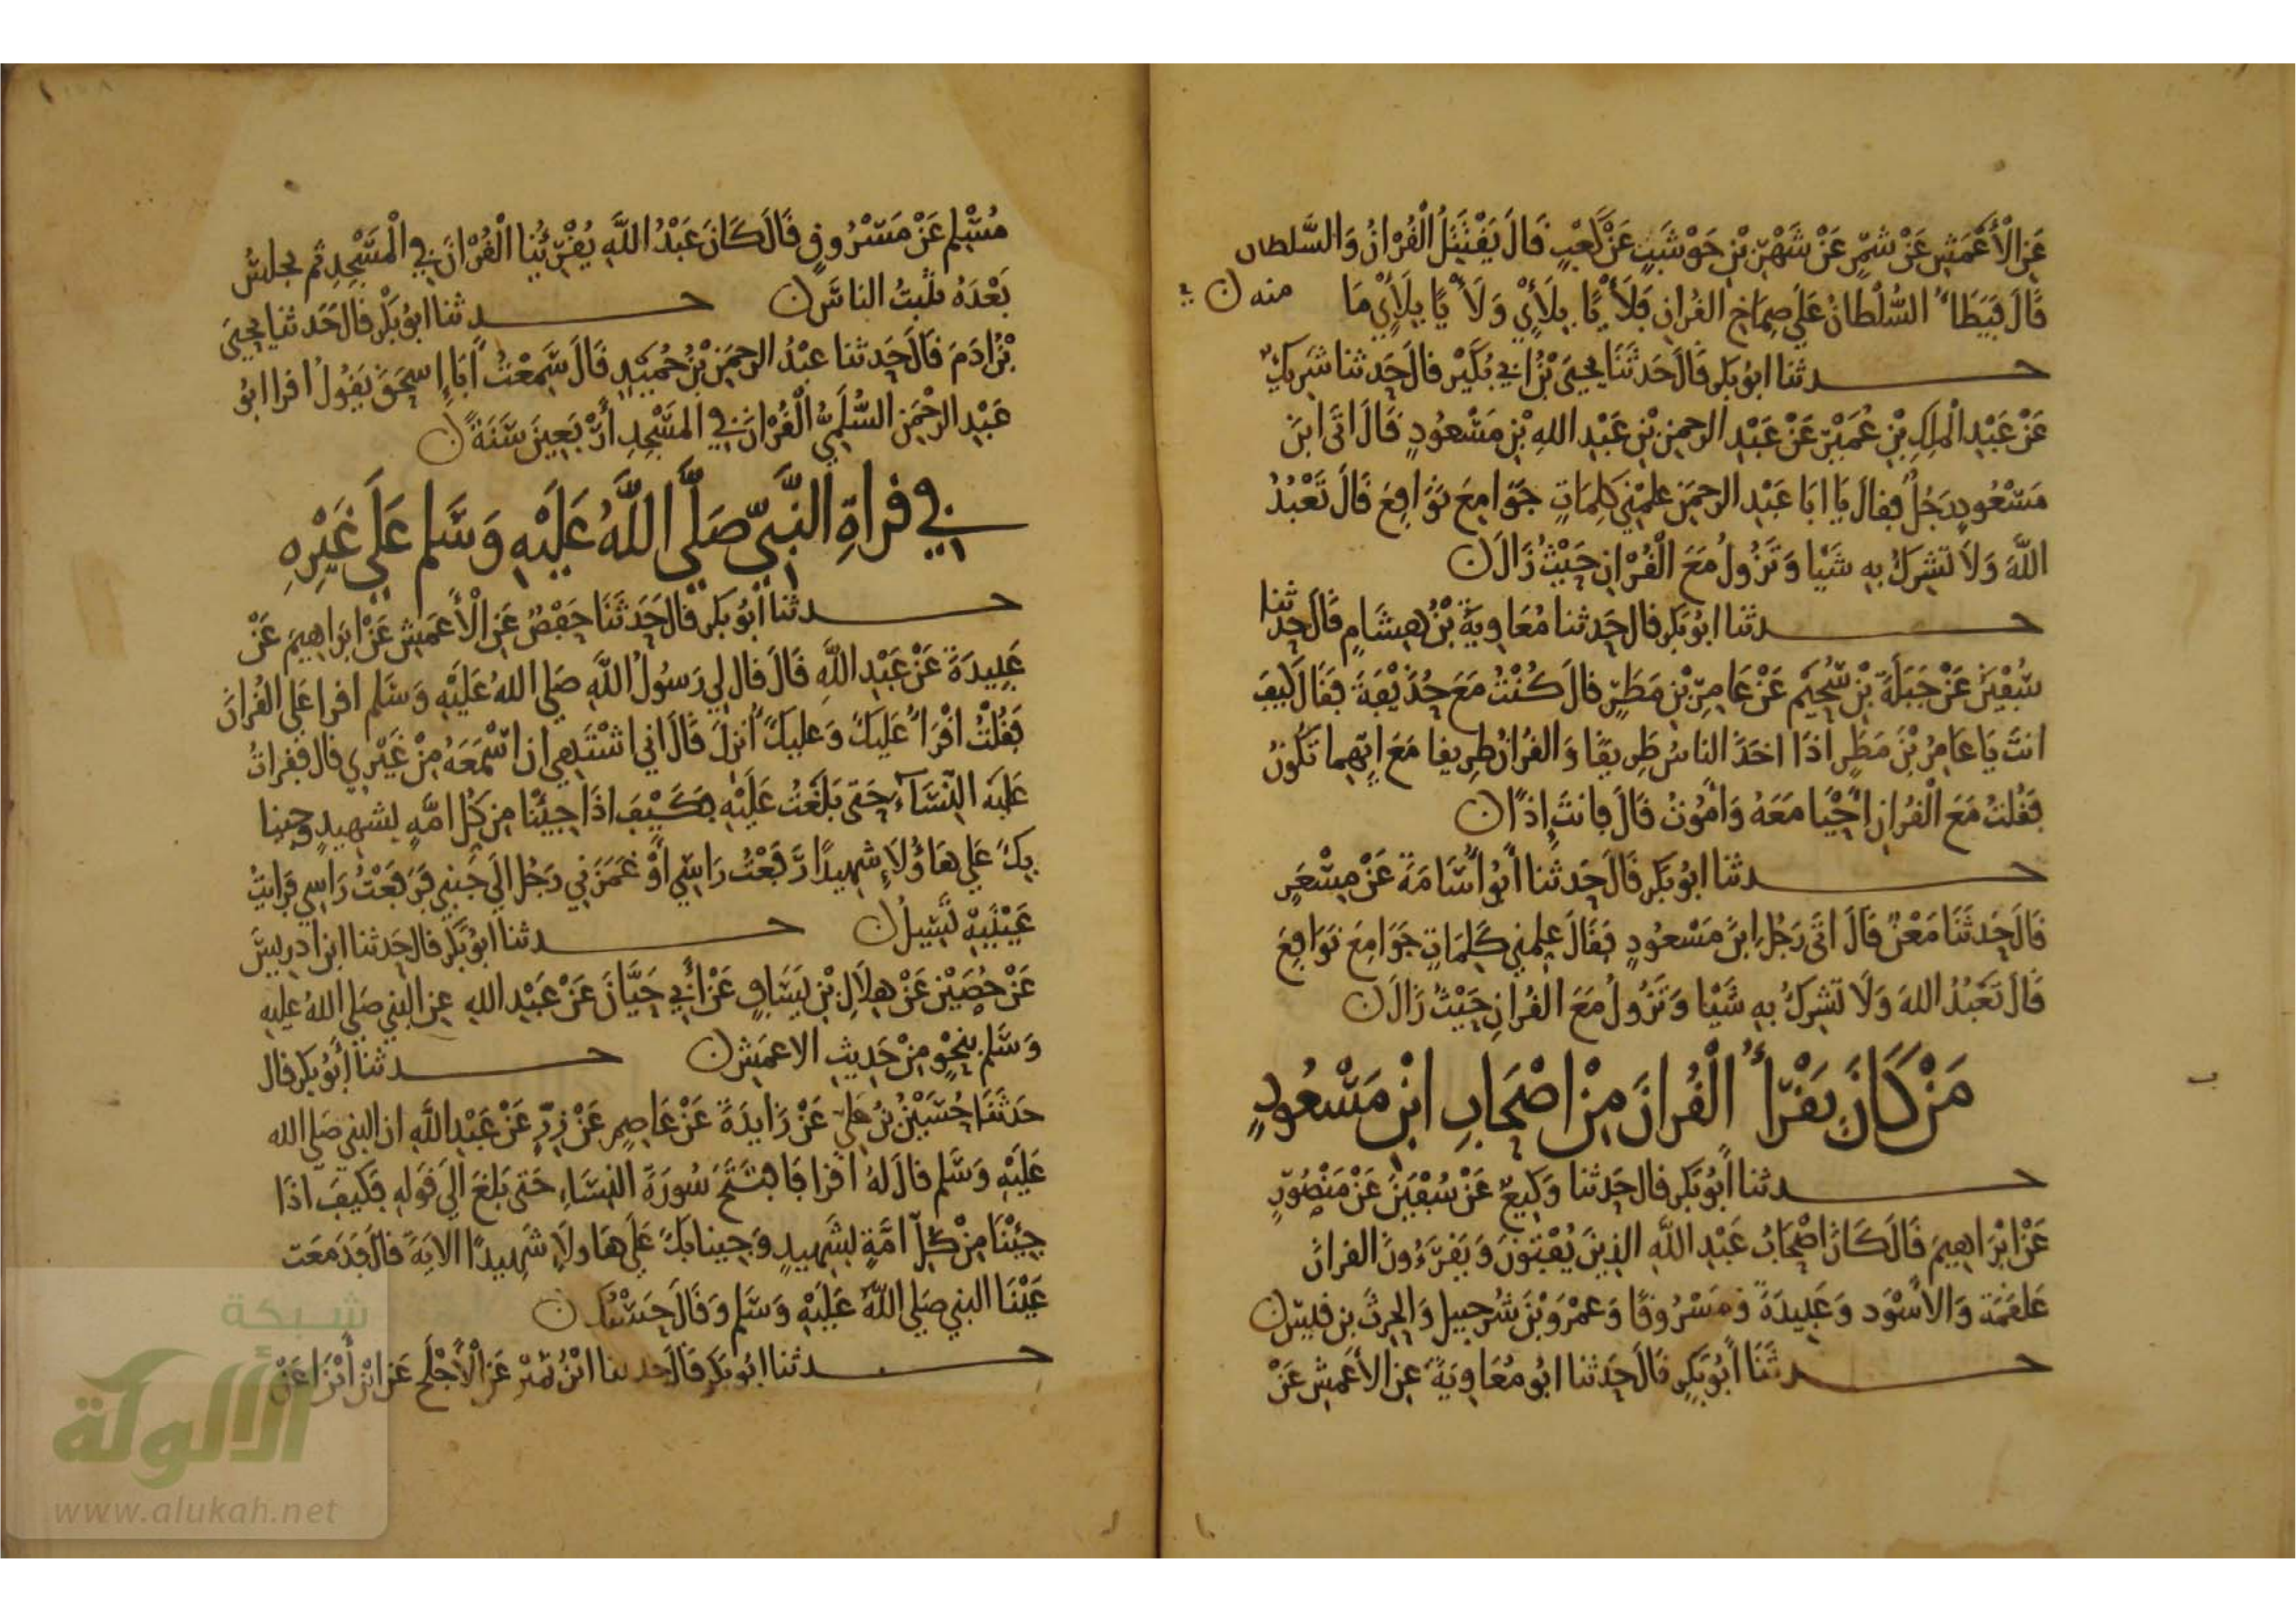 عَنِ الْأَعْمَشِ عَنْ شِمْرٍ عَنْ شَهْرِ بْنِ حَوْشَبٍ عَنْ كَعْبٍ قَالَ يَقْتَتِلُ الْقُرْانُ وَالسَّلطان
قَالَ فَيَطَأُ السُّلْطَانُ عَلَى صِمَاخِ القُرانِ فَلَأْيًا بِلَأْيٍ وَلَأْيًا بِلَأْيٍ مَا منه
حدثنا ابُو بَكر قَالَ حَدثَنَا يحيَى بْنُ ابي بُكَيْر قال حَدثنا شَرِيكٌ
عَنْ عَبْدِ الْملِكِ بْنِ عُمَيْرٍ عَنْ عَبْدِ الرحمنِ بْنِ عَبْدِ اللهِ بْنِ مَسْعُودٍ قَالَ اتَى ابنَ
مَسْعُودٍ رَجُلٌ فقالَ يَا ابَا عَبْدِ الرحمَن علمْنِي كَلِمَاتٍ جَوَامِعَ نَوَافِعَ قَالَ تَعْبُدُ
اللَّهَ وَلَا تشرِكُ بِهِ شَيْا وَتَزُولُ مَعَ الْقُرْانِ حَيْثُ زَالَ
حدثنا ابُو بَكر قال حَدثنا مُعَاوِيَةُ بْنُ هِشَامٍ قَالَ حدثنا
سُفْيَنُ عَنْ جَبَلَةَ بْنِ سُحَيْمٍ عَنْ عَامِرِ بْنِ مَطَرٍ قالَ كُنْتُ مَعَ حُذَيْفَةَ فَقَالَ كيفَ
انتَ يَا عَامِرُ بْنَ مَطَرٍ اذَا اخَذَ الناسُ طَرِيقًا وَالقُرانُ طرِيقا مَعَ ايِّهِما تَكُونُ
فقُلتُ مَعَ الْقُرْانِ احْيَا مَعَهُ وَامُوتُ قَالَ فانتَ اذًا
حدثنا ابُو بَكر قَالَ حَدثنا ابُو اسَامَةَ عَنْ مِسْعَرٍ
قَالَ حَدثَنَا مَعْنٌ قَالَ اتَى رَجُل ابنَ مَسْعُودٍ فَقَالَ علمني كَلِمَاتٍ جَوَامِعَ نَوَافِعَ
قَالَ تَعْبُدُ اللهَ وَلَا تشرِكُ بِهِ شَيْا وَتَزُولُ مَعَ القُرانِ حَيْثُ زَالَ
مَنْ كَانَ يَقْرَأُ الْقُرانَ مِنْ اصْحَابِ ابْنِ مَسْعُودٍ
حدثنا ابُو بَكر قال حَدثنا وَكِيعٌ عَنْ سُفْيَنَ عَنْ مَنْصُورٍ
عَنْ ابْرَاهِيمَ قَالَ كَانَ اصْحَابُ عَبْدِ اللَّهِ الذِينَ يُفْتُونَ وَيَقْرَءُونَ القرانَ
عَلقَمَة وَالاسْوَد وَعَبِيدَةَ وَمَسْرُوقًا وَعَمْرَو بْنَ شُرَحبيل وَالحرثَ بن قيس
حدثَنَا ابُو بَكرٍ قَالَ حَدَثنا ابُو مُعَاوِيَةَ عَنِ الأَعْمَشِ عَنْ
مُسْلِمٍ عَنْ مَسْرُوقٍ قَالَ كَانَ عَبْدُ اللَّهِ يُقْرِئُنَا الْقُرْانَ فِي الْمَسْجِدِ ثم يجلسُ
بَعْدَهُ يثبتُ الناسَ حدثنا ابُو بَكْر قال حَدثنا يحيَى
بْنُ ادَمَ قَالَ حَدثنا عَبْدُ الرحمَنِ بْنُ حُمَيْدٍ قَالَ سَمِعْتُ ابَا اسحَقَ يَقُولُ اقرا ابُو
عَبْدِ الرحْمَنِ السُّلَمِيُّ الْقُرْانَ فِي المَسْجِدِ أَرْبَعِينَ سَنَةً
في قراةِ النَّبِيِّ صَلَّى اللَّهُ عَلَيْهِ وَسَلم عَلَى غَيْرِهِ
حدثنا ابُو بَكر قال حَدَثَنَا حَفْصٌ عَنِ الْأَعْمَشِ عَنْ ابرَاهِيمَ عَنْ
عَبِيدَةَ عَنْ عَبْدِ اللَّهِ قَالَ قال لِي رَسُولُ اللَّهِ صَلى اللهُ عَلَيْهِ وَسَلم اقرا عَلي القُرانَ
فَقُلْتُ اقْرَأُ عَلَيكَ وَعَليكَ أُنزِلَ قَالَ اني اشْتَهِي ان اسْمَعَهُ مِنْ غَيْرِي قال فقراتُ
عَلَيْهِ النِّسَآءَ حَتى بَلَغْتُ عَلَيْهِ فَكَيْفَ اذَا جِئْنَا مِن كل امَّةٍ بشَهِيدٍ وجينا
بِكَ عَلي هَاؤُلاءِ شهِيدًا رَفَعْتُ رَاسِي أَوْ غَمَزَنِي رَجُل الَى جَنبي فَرَفَعْتُ رَاسِي فَرَايتُ
عَيْنَيْهِ تَسِيلُ حدثنا ابُو بَكر قال حَدثنا ابن ادريسَ
عَنْ حُصَيْنٍ عَنْ هِلَالِ بْنِ يَسَافٍ عَنْ أَبِي حَيَّانَ عَنْ عَبْدِ اللهِ عنِ النبي صَلي اللهُ عليه
وَسَلم بِنَحْوٍ مِنْ حَدِيثِ الاعمَشِ حدثنا أبُو بَكر قال
حَدثَنَا حُسَيْنُ بْنُ عَلِي عَنْ زَايدَةَ عَنْ عَاصِمٍ عَنْ زِرٍّ عَنْ عَبْدِ اللَّهِ ان النبي صَلى الله
عَلَيْهِ وَسَلم قالَ لهُ اقرا فَافتتحَ سُورَةَ النِسَاءِ حَتى بَلغَ الَى قوله فَكَيفَ اذَا
جِئْنَا مِنْ كلِّ امَّةٍ بشَهِيدٍ وَجِينا بكَ عَلَى هَاولَاءِ شَهِيدًا الايَةَ قالَ فدَمَعَت
عَيْنَا النبي صَلي اللهُ عَلَيْهِ وَسَلم وَقَالَ حَسْبُكَ
حدثنا ابُو بَكر قَالَ حدثنا ابْنُ نُمَيْرٍ عَنِ الْأَجْلَحِ عَنِ ابْنِ أَبْزَا عَنْ
شبكة
الألوكة
www.alukah.net